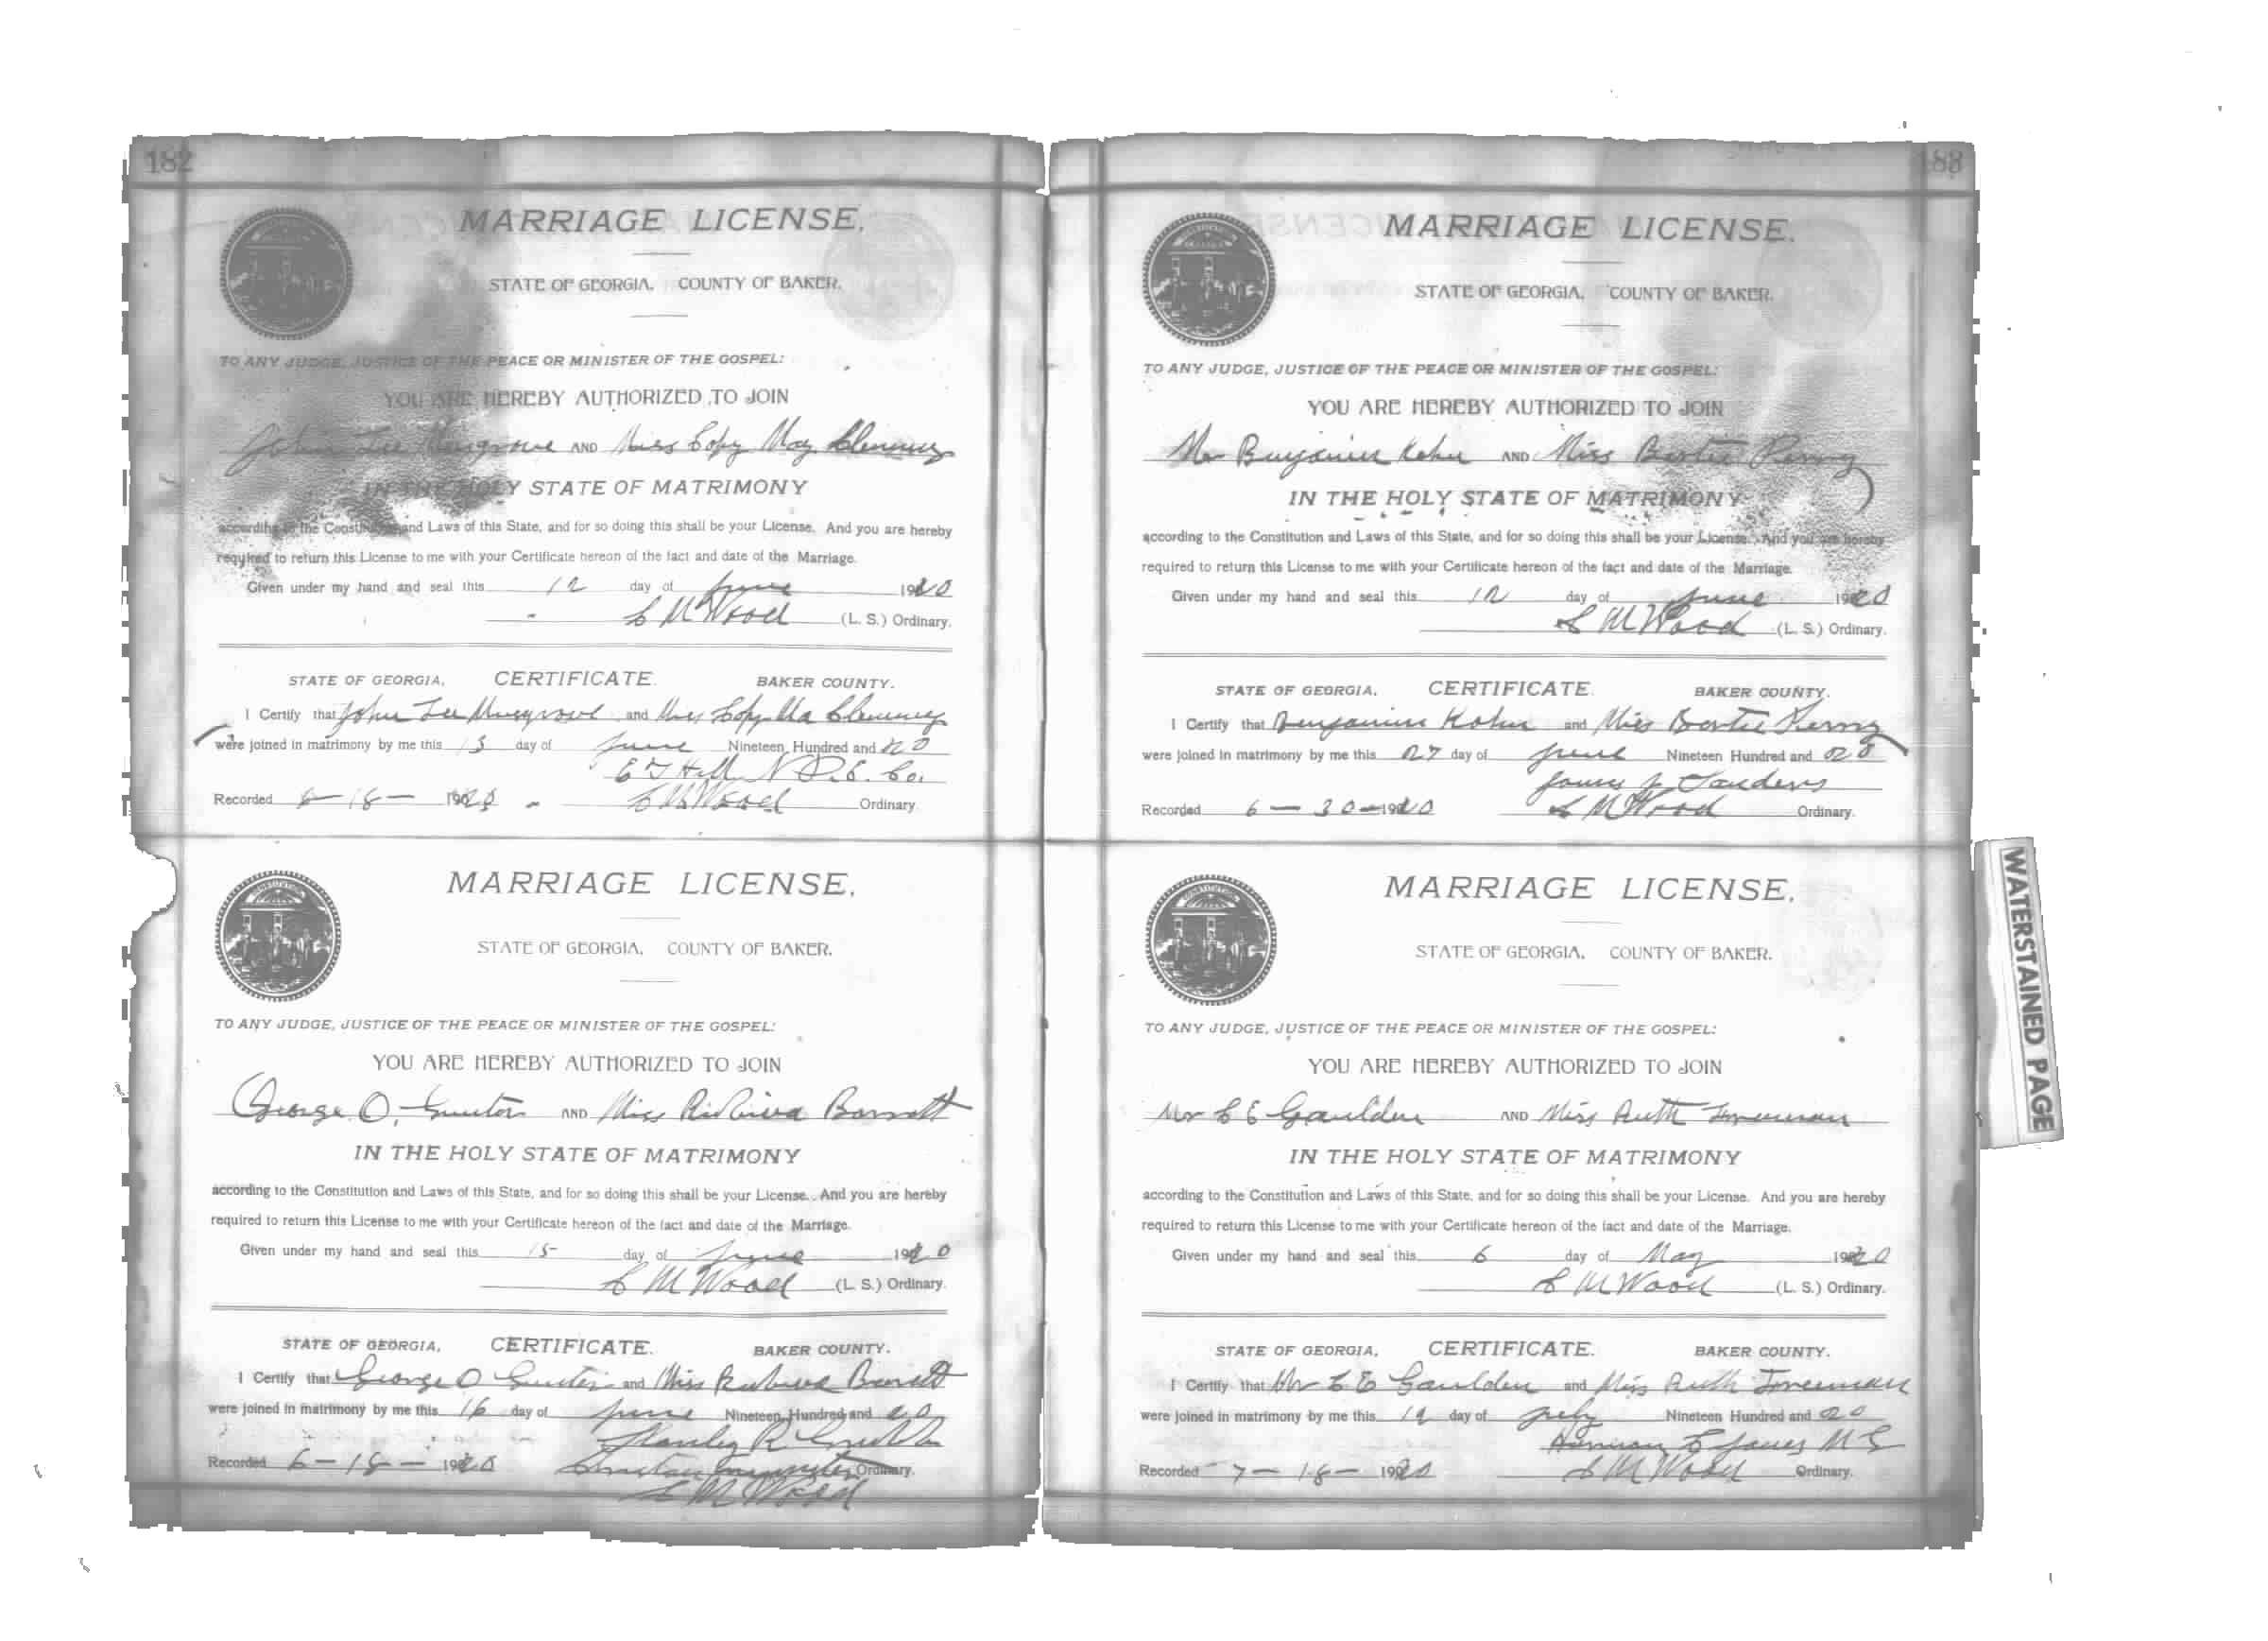 182
MARRIAGE LICENSE.
STATE OF GEORGIA. COUNTY OF BAKER.
TO ANY JUDGE, JUSTICE OF THE PEACE OR MINISTER OF THE GOSPEL:
YOU ARE HEREBY AUTHORIZED TO JOIN
John Lee Musgrove AND Miss May
IN THE HOLY STATE OF MATRIMONY
according to the Constitution and Laws of this State, and for so doing this shall be your License. And you are hereby
required to return this License to me with your Certificate hereon of the fact and date of the Marriage.
Given under my hand and seal this 12 day of June 1920
C M Wood (L. S.) Ordinary.
STATE OF GEORGIA. CERTIFICATE. BAKER COUNTY.
I Certify that John Lee Musgrove and
were joined in matrimony by me this 13 day of June Nineteen Hundred and 20
Recorded 1920 C M Wood Ordinary.
MARRIAGE LICENSE.
STATE OF GEORGIA. COUNTY OF BAKER.
TO ANY JUDGE, JUSTICE OF THE PEACE OR MINISTER OF THE GOSPEL:
YOU ARE HEREBY AUTHORIZED TO JOIN
George O. Gunter AND Miss Barnett
IN THE HOLY STATE OF MATRIMONY
according to the Constitution and Laws of this State, and for so doing this shall be your License. And you are hereby
required to return this License to me with your Certificate hereon of the fact and date of the Marriage.
Given under my hand and seal this 15 day of June 1920
C M Wood (L. S.) Ordinary.
STATE OF GEORGIA. CERTIFICATE. BAKER COUNTY.
I Certify that George O Gunter and Miss Barnett
were joined in matrimony by me this 16 day of June Nineteen Hundred and 20
Stanley R
Recorded 6-18-1920 Christian minister Ordinary.
C M Wood
183
MARRIAGE LICENSE.
STATE OF GEORGIA. COUNTY OF BAKER.
TO ANY JUDGE, JUSTICE OF THE PEACE OR MINISTER OF THE GOSPEL:
YOU ARE HEREBY AUTHORIZED TO JOIN
Mr Benjamin Kohn AND Miss Bertie Perry
IN THE HOLY STATE OF MATRIMONY
according to the Constitution and Laws of this State, and for so doing this shall be your License. And you are hereby
required to return this License to me with your Certificate hereon of the fact and date of the Marriage.
Given under my hand and seal this 12 day of June 1920
C M Wood (L. S.) Ordinary.
STATE OF GEORGIA. CERTIFICATE. BAKER COUNTY.
I Certify that Benjamin Kohn and Miss Bertie Perry
were joined in matrimony by me this 27 day of June Nineteen Hundred and 20
James J Sanders
Recorded 6-30-1920 C M Wood Ordinary.
MARRIAGE LICENSE.
STATE OF GEORGIA. COUNTY OF BAKER.
TO ANY JUDGE, JUSTICE OF THE PEACE OR MINISTER OF THE GOSPEL:
YOU ARE HEREBY AUTHORIZED TO JOIN
Mr C E Gaulden AND Miss Ruth Freeman
IN THE HOLY STATE OF MATRIMONY
according to the Constitution and Laws of this State, and for so doing this shall be your License. And you are hereby
required to return this License to me with your Certificate hereon of the fact and date of the Marriage.
Given under my hand and seal this 6 day of May 1920
C M Wood (L. S.) Ordinary.
STATE OF GEORGIA. CERTIFICATE. BAKER COUNTY.
I Certify that Mr C E Gaulden and Miss Ruth Freeman
were joined in matrimony by me this day of July Nineteen Hundred and 20
Herman C Jones M G
Recorded 7-18-1920 C M Wood Ordinary.
WATERSTAINED PAGE